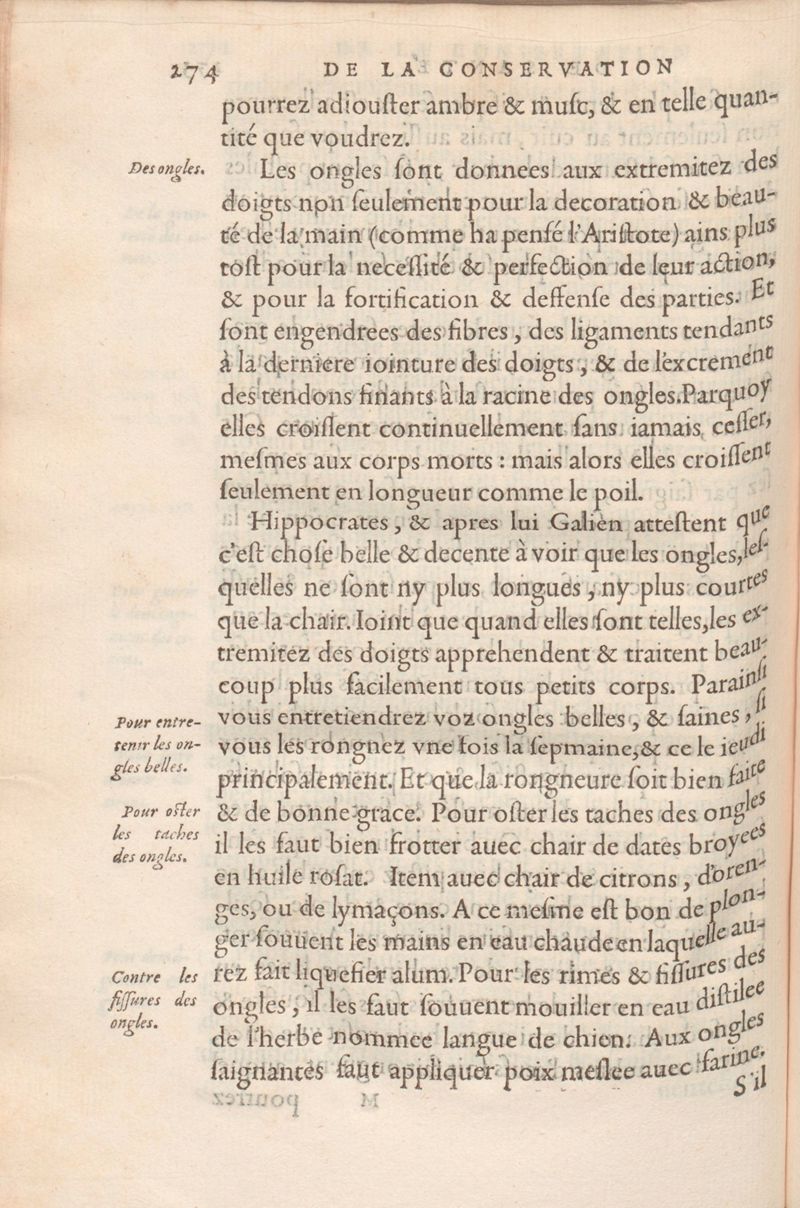 274 DE LA CONSERVATION
pourrez adiouſter ambre & muſc, & en telle quan-
tité que voudrez.
Des ongles.
Les ongles ſont donnees aux extremitez des
doigts non ſeulement pour la decoration & beau-
té de la main (comme ha penſé l'Ariſtote) ains plus
toſt pour la neceſſité & perfection de leur action,
& pour la fortification & deffenſe des parties. Et
ſont engendrees des fibres, des ligaments tendants
à la derniere iointure des doigts, & de l'excrement
des tendons finants à la racine des ongles. Parquoy
elles croiſſent continuellement ſans iamais ceſſer,
meſmes aux corps morts : mais alors elles croiſſent
ſeulement en longueur comme le poil.
Hippocrates, & apres lui Galien atteſtent que
c'eſt choſe belle & decente à voir que les ongles, leſ-
quelles ne ſont ny plus longues, ny plus courtes
que la chair. Ioint que quand elles ſont telles, les ex-
tremitez des doigts apprehendent & traitent beau-
coup plus facilement tous petits corps. Parainſi
Pour entre-
tenir les on-
gles belles.
vous entretiendrez voz ongles belles, & ſaines, ſi
vous les rongnez vne fois la ſepmaine, & ce le ieudi
principalement. Et que la rongneure ſoit bien faite
Pour oſter
les taches
des ongles.
& de bonne grace. Pour oſter les taches des ongles
il les faut bien frotter auec chair de dates broyees
en huile roſat. Item auec chair de citrons, d'oren-
ges, ou de lymaçons. A ce meſme eſt bon de plon-
ger ſouuent les mains en eau chaude en laquelle au-
Contre les
fiſſures des
ongles.
rez fait liquefier alum. Pour les rimes & fiſſures des
ongles, il les faut ſouuent mouiller en eau diſtilee
de l'herbe nommee langue de chien. Aux ongles
ſaignantes faut appliquer poix meſlee auec farine.
S'il